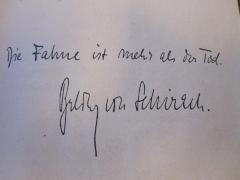 Die Fahne ist mehr als der Tod.
Baldur von Schirach.